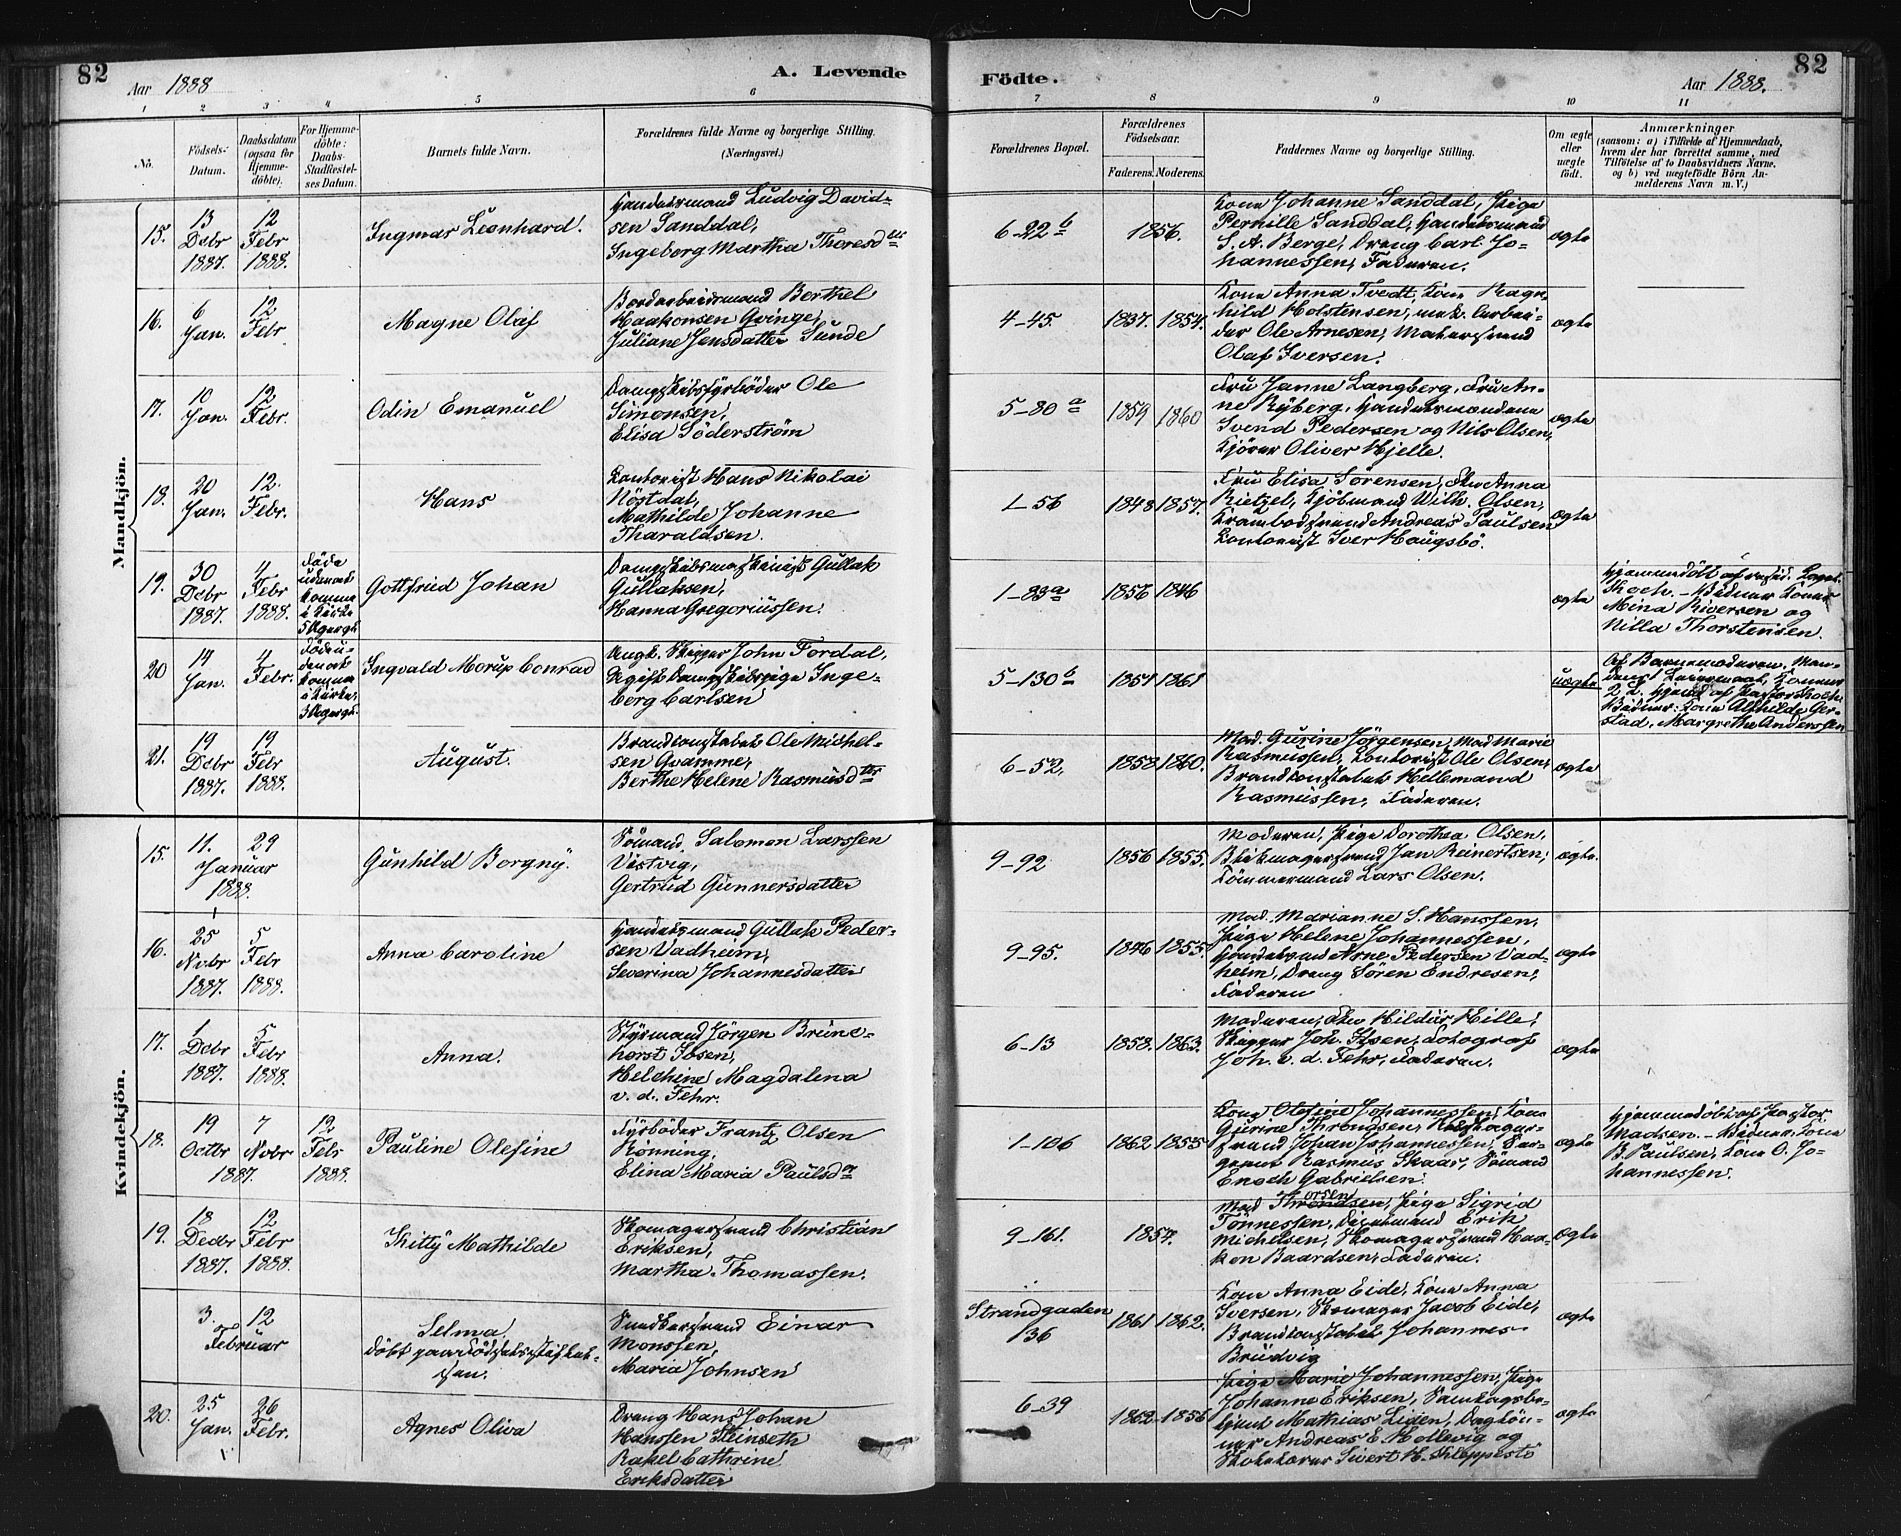 82
Aar 1888
A. Levende
Födte.
Aar 1888.
82
1 2 3 4 5 6 7 8 9 10 11
No.
Födsels-
Datum.
Daabsdatum
(ogsaa for
Hjemme-
döbte).
For Hjemme-
döbte:
Daabs-
Stadfæstel-
ses Datum.
Barnets fulde Navn.
Forældrenes fulde Navne og borgerlige Stilling.
(Næringsvei.)
Forældrenes Bopæl.
Forældrenes
Födselsaar.
Faderens. Moderens.
Faddernes Navne og borgerlige Stilling.
Om ægte
eller
uægte
födt.
Anmærkninger
(saasom: a) i Tilfælde af Hjemmedaab,
hvem der har forrettet samme, med
Tilföielse af to Daabsvidners Navne,
og b) ved uægtefödte Börn An-
melderens Navn m. V.)
Mandkjön.
15.
13
Decbr
1887.
12
Febr
1888.
Ingmar Leonhard.
Handelsmand Ludvig David-
sen Sanddal,
Ingeborg Martha Thoresdtr
6-22 b
1856.
Kone Johanne Sanddal, Pige
Pernille Sanddal, Handelsmand
S. A. Berge, Dreng Carl Jo-
hannessen, Faderen.
ægte
16.
6
Jan.
12
Febr
Magne Olaf
Bordarbeidsmand Berthel
Haakonsen Qvinge,
Juliane Jensdatter Sunde
4-45.
1837. 1854.
Kone Anna Tvedt, Kone Ragn-
hild Holstensen, mek. Arbei-
der Ole Arnesen, Malersvend
Olaf Iversen.
ægte
17.
10
Jan.
12
Febr.
Odin Emanuel
Dampskibsfyrböder Ole
Simonsen,
Elisa Söderström
5-80 a
1859 1860
Fru Janne Langberg, Fru An-
ne Ryberg, Handelsmændene
Svend Pedersen og Nils Olsen,
Kjörer Oliver Hjelle.
ægte
18.
20
Jan.
12.
Febr.
Hans
Kontorist Hans Nikolai
Nöstdal,
Mathilde Johanne
Tharaldsen.
1-56
1848 1857.
Fru Elisa Sörensen, Frk Anna
Rietzel, Kjöbmand Wilh. Olsen,
Krambodsvend Andreas Paulsen
Kontorist Iver Haugsbö.
ægte
19.
30
Decbr
1887.
4
Febr
1888.
Döde
uden at
komme
i Kirke
Gottfried Johan
Dampskibsmaskinist Gullak
Gullaksen,
Hanna Gregoriussen.
1-83a
1856 1846
ægte
Mina Siversen og
Nilla Thorstensen.
20
Jan.
4
Febr.
Ingvald Morup Conrad
Ungk. Skipper John Fordal,
Ugift Dampskibspige Inge-
borg Carlsen
5-130 b
1851 1861
uægte
stad, Margrethe Anderssen
21.
19
Decbr
1887.
19
Febr
1888.
August.
Brandkonstabel Ole Michel-
sen Qvamme,
Berthe Helene Rasmusdtr
6-52,
1858 1860.
Mad. Gurine Jörgensen, Mad Marie
Rasmussen, Kontorist Ole Olsen,
Brandkonstabel Hellemand
Rasmussen, Faderen.
ægte
Kvindekjön.
15.
11. 29
Januar
1888.
Gunhild Borgny.
Sömand Salomon Larssen
Vestvig,
Gertrud Gunnersdatter
9-92
1856 1855.
Moderen, Pige Dorothea Olsen,
Blikmagersvend Jan Reinertsen,
Tömmermand Lars Olsen.
ægte.
16.
25
Novbr
1887.
5
Febr
1888.
Anna Caroline
Handelsmand Gullak Peder-
sen Vadheim,
Severina Johannesdatter
9-95.
1846 1855.
Mad. Marianne S. Hanssen,
Pige Helene Johannessen,
Handelsmand Arne Pedersen Vad-
heim, Dreng Sören Endresen,
Faderen
ægte
17.
1
Decbr
1887.
5
Febr
1888.
Anna.
Styrmand Jörgen Brune-
horst Ibsen,
Helchine Magdalena
v. d. Fehr.
6-13
1858. 1863.
Moderen, Frk Hildur Hille,
Skipper Joh. Ibsen, Fotograf
Joh. v. d. Fehr, Faderen.
ægte
18.
19
Octbr
1887.
7
Novbr
12
Febr
1888.
Pauline Olefine
Fyrböder Frantz Olsen
Rönning,
Elina Maria Paulsdtr
1-106
1862 1855
Kone Olefine Johannessen, Kone
Gurine Throndsen,
svend Johan Johannessen,
Rasmus Skaar, Sömand
Enoch Gabrielsen.
ægte
Hjemmedöbt af Pastor
Madsen. - Vidner: Kone
P. Paulsen, Kone O. Jo-
hannessen.
19.
18
Decbr
1887.
12
Febr
1888.
Kitty Mathilde
Skomagersvend Christian
Eriksen,
Martha Thomassen.
9-161.
1857.
Mad Thorsen, Pige Sigrid
Tönnessen, Erik
Michelsen, Skomagersvend Haa-
kon Baardsen, Faderen.
ægte
3. 12
Februar
Selma,
döbt paa Födselsstiftel-
sen.
Snedkersvend Einar
Monssen,
Maria Johnsen
Strandgaden
136
1861 1862.
Kone Anna Eide, Kone Anna
Iversen, Skomager Jacob Eide,
Brandkonstabel Johannes
Brudvig
ægte
20.
25
Jan.
26
Febr.
Agnes Oliva
Dreng Hans Johan
Hanssen Steinseth
Rakel Cathrine
Eriksdatter
6-39
1862 1856
Pige Marie Johannessen, Pige
Johanne Eriksen,
Mathias Liden, Daglön-
ner Andreas E. Hollevig og
Sivert H. Kleppestö
ægte